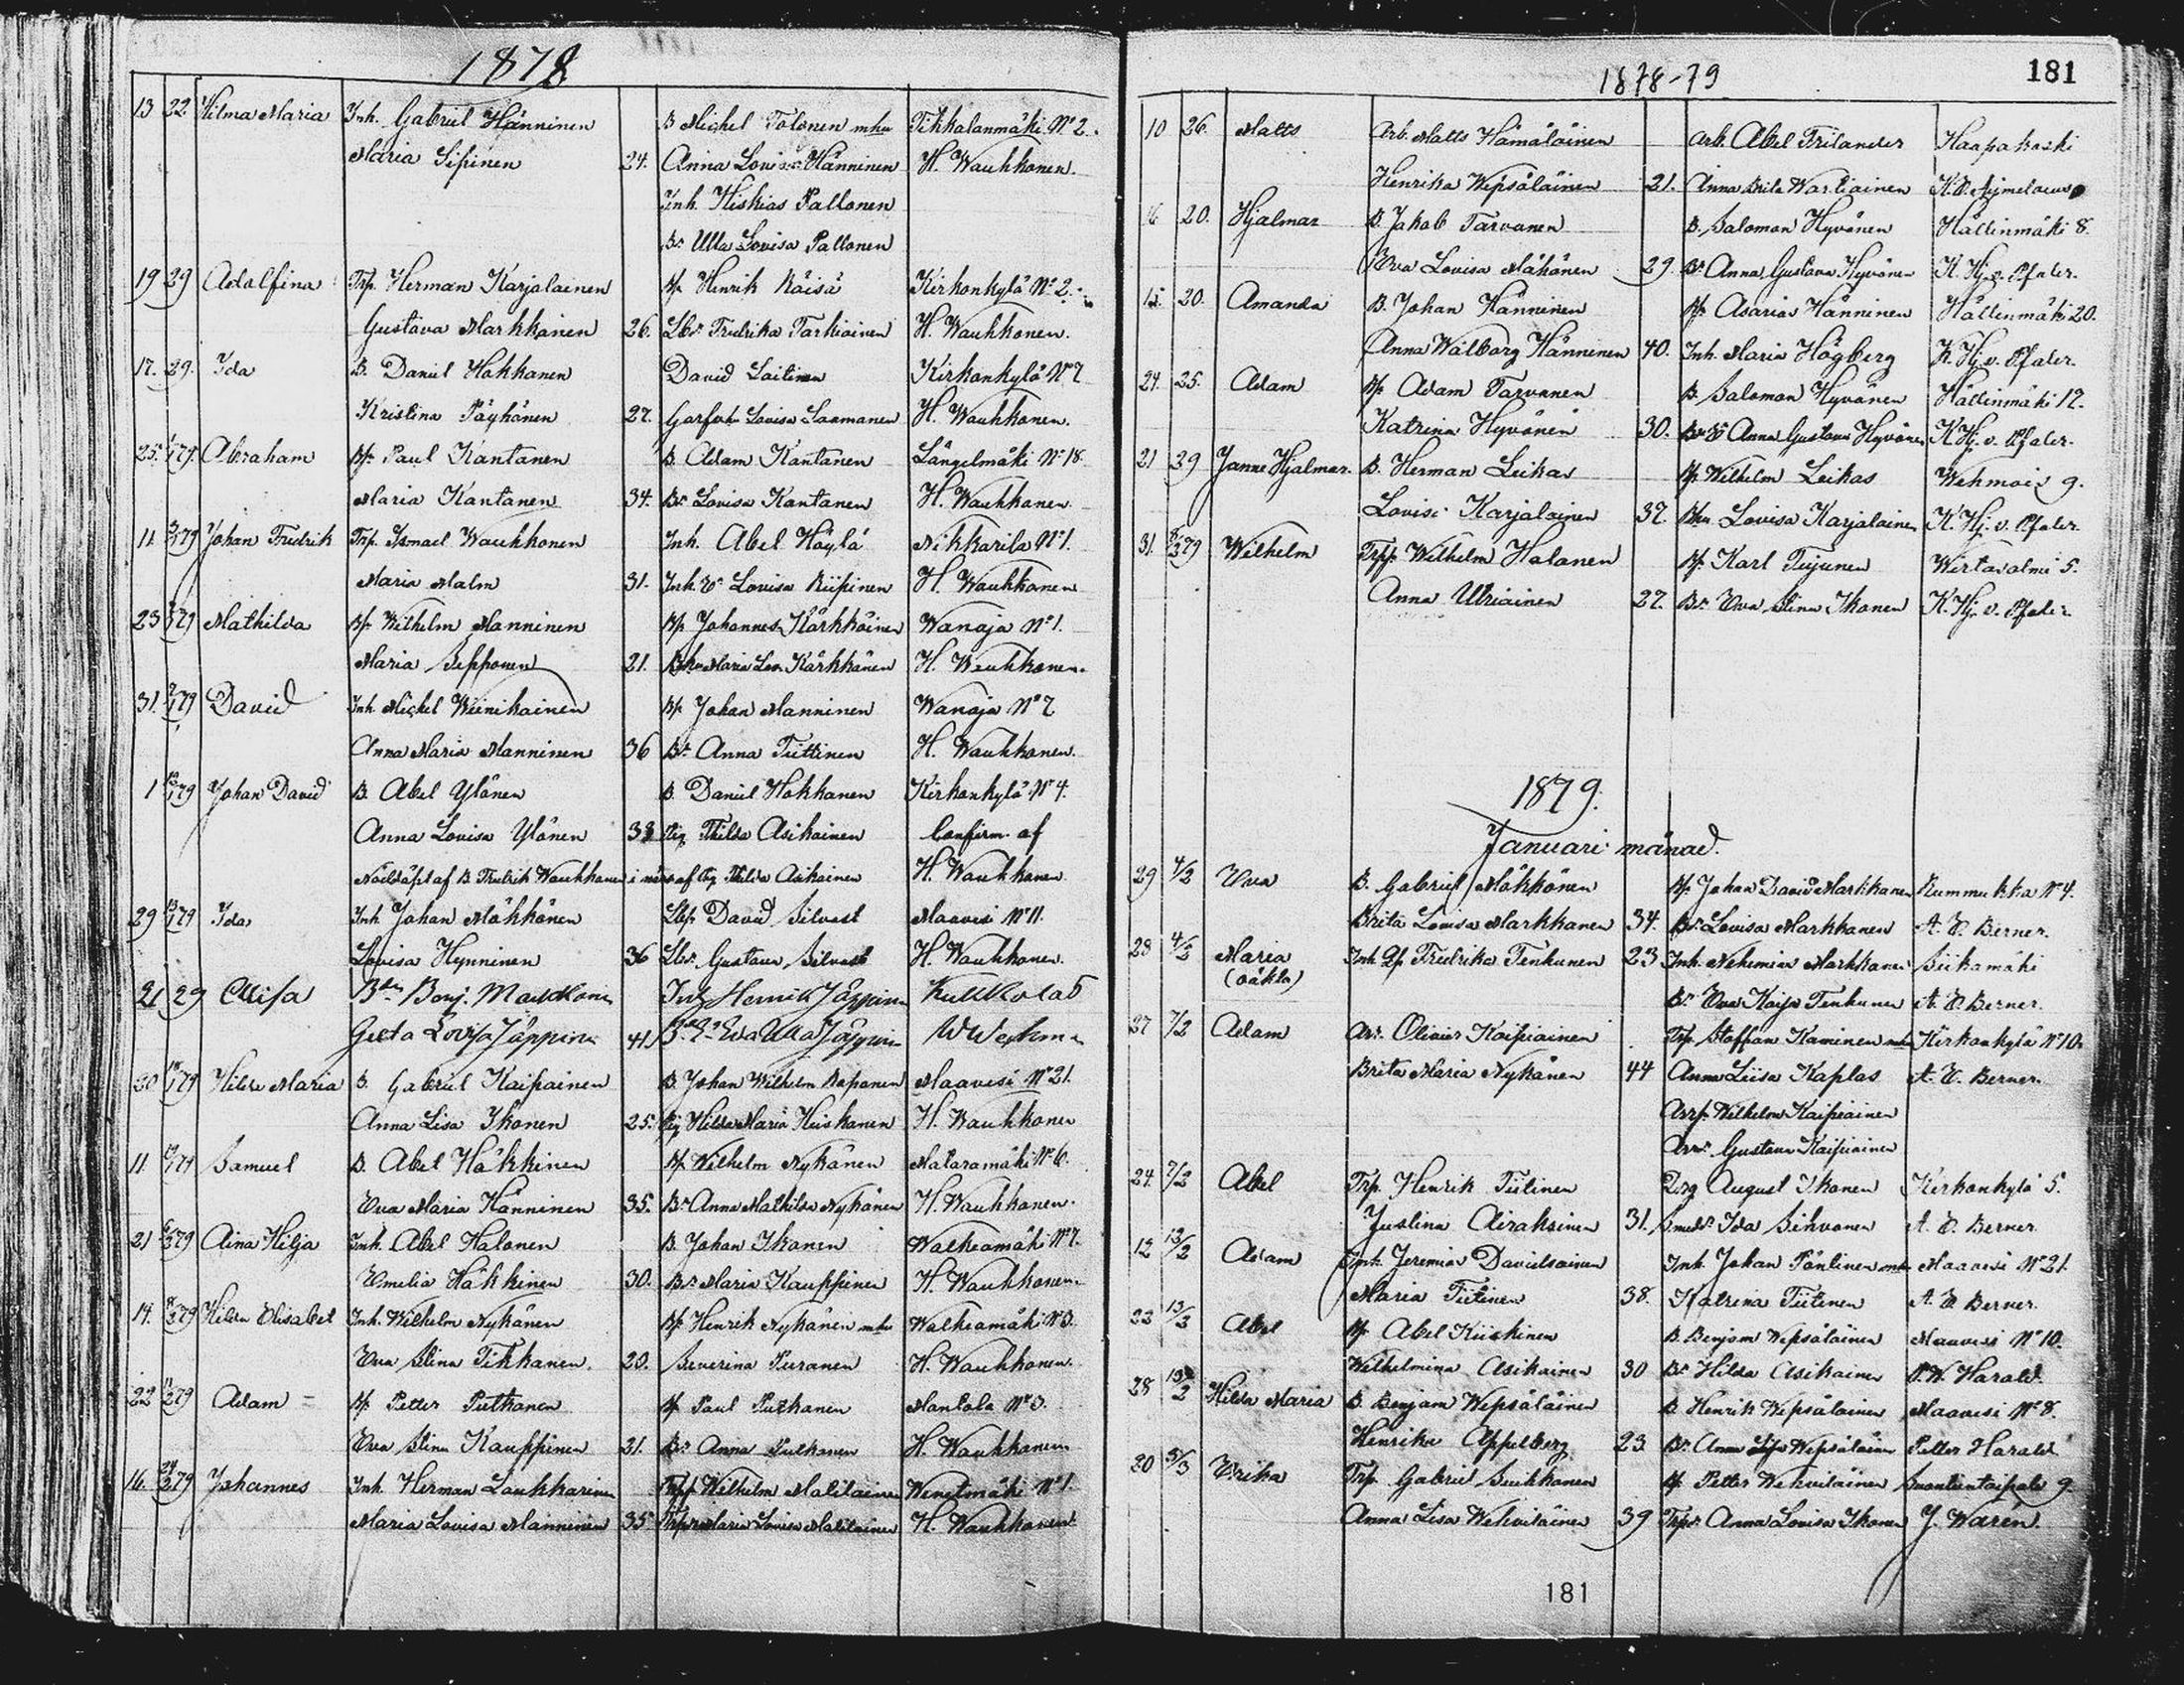 1878
13 22 Hilma Maria Inh. Gabriel Hänninen B Michel Tolonen mhu Tikkalanmäki No 2.
Maria Sipinen 24. Anna Lovisa Hänninen H. Waukkonen.
Inh. Hiskias Pallonen
Bs Ulla Lovisa Pallonen
19 29 Adolfina Trp. Herman Karjalainen Bp Henrik Räisä Kirkonkylä No 2.
Gustava Markkanen 26. Lbs Fredrika Tarkiainen H. Waukkonen.
17. 29. Ida B. Daniel Hokkanen David Laitinen Kirkonkylä No 7
Kristina Päykönen 27. Lovisa Laamanen H. Waukkonen.
25. 1/1 79. Abraham Bp. Paul Kantanen B. Adam Kantanen Längelmäki No 18
Maria Kantanen 34. Bs Lovisa Kantanen H. Waukkonen
11. 79 Johan Fredrik Trp. Ismael Waukkonen Inh. Abel Höylä Nikkarila No 1.
Maria Malm 31. Inh. Ea Lovisa Riipinen H. Waukkonen
23 79 Mathilda Bp Wilhelm Manninen Bp Johannes Kärkkäinen Wanaja No 1.
Maria Sepponen 21. Maria Lov. Kärkkänen H. Waukkonen.
31. 79 David Inh. Michel Weinikainen Bp Johan Manninen Wanaja No 7
Anna Maria Manninen 36 Bs Anna Tiittinen H. Waukkonen.
1 79 Johan David B. Abel Ylönen B. Daniel Hokkanen Kirkonkylä No 4.
Anna Lovisa Ylönen 33 Pig. Thilda Asikainen Confirm. af
Nöddöpt af B. Fredrik Waukkonen i af Pig. Thilda Asikainen H. Waukkonen
29 79 Ida Inh Johan Mökkönen Lbp David Silvast Maavesi No 11.
Lovisa Hynninen 36 Lbs. Gustava Silvast H. Waukkonen.
21 29 Elisa Bdn Benj. Inh Henrik Jäppinen Kukkola 5
Gusta Lovisa Jäppinen 41. Eva Ulla Jäppinen
30 79 Hilda Maria B. Gabriel Kaipainen B. Johan Wilhelm Reponen Maavesi No 21.
Anna Lisa Ikonen 25. Pig Hilda Maria Kiiskanen H. Waukkonen
11. 79 Samuel B. Abel Häkkinen Bp Wilhelm Nykänen Mataramäki No 6.
Eva Maria Hänninen 35. Bs Anna Mathilda Nykänen H. Waukkonen.
21 79 Aina Hilja Inh. Abel Halonen B. Johan Ikonen Walkeamäki No 7.
Emelia Häkkinen 30. Bs Maria Kauppinen H. Waukkonen.
14. 79 Hilda Elisabet Inh. Wilhelm Nykänen Bp Henrik Nykänen mhu Walkeamäki No 3.
Eva Stina Tikkanen. 20. Severina Puranen H. Waukkonen.
22 79 Adam Bp Petter Putkonen Bp Paul Putkonen Mantola No 3.
Eva Stina Kauppinen 21. Bs Anna Putkonen H. Waukkonen
16. 79 Johannes Inh. Herman Laukkarinen Trpp Wilhelm Malilainen Wenetmäki No 1.
Maria Lovisa Manninen 35 Maria Lovisa Malilainen H. Waukkonen.
1878-79
181
10 26. Matts Arb. Matts Hämäläinen Arb. Abel Frilander Haapakoski
Henrika Wepsäläinen 21. Anna Brita Wartiainen K. E. Aejmelaeus
16 20. Hjalmar B. Jakob Tarvanen B. Salomon Hyvönen Hällinmäki 8.
Eva Lovisa Mähönen 29. Bs Anna Gustava Hyvönen K. Hj. v. Pfaler.
15. 20. Amanda B. Johan Hänninen Bp Asarias Hänninen Hällinmäki 20.
Anna Walborg Hänninen 40. Inh. Maria Högberg K. Hj. v. Pfaler.
24. 25. Adam Bp Adam Tarvanen B Salomon Hyvönen Hällinmäki 12.
Katrina Hyvönen 30. Anna Gustava Hyvönen K. Hj. v. Pfaler.
21 29 Janne Hjalmar. B. Herman Leikas Bp Wilhelm Leikas Wehmais 9.
Lovisa Karjalainen 37. Bhu Lovisa Karjalainen K. Hj. v. Pfaler
31. 79 Wilhelm Trpp. Wilhelm Halonen Bp. Karl Teijunen Wirtasalmi 5.
Anna Ukiainen 27. Bs Eva Stina Ikonen K. Hj. v. Pfaler
1879.
Januari månad.
29 4/2 Eva B. Gabriel Mökkönen Bp Johan David Markkanen Rummukka No 4.
Brita Lovisa Markkanen 34. Bs Lovisa Markkanen A. E. Berner.
28 4/2 Maria Inh. Df Fredrika Tenkunen 23 Inh. Nehemias Markkanen Siikamäki
(oäkta) Bs Eva Kaisa Tenkunen A. E. Berner.
27 7/2 Adam Arr. Olivier Kaipiainen Trp. Staffan Kaminen mhu Kirkonkylä No 10.
Brita Maria Nykänen 44 Anna Liisa Kaplas A. E. Berner.
Arrp. Wilhelm Kaipiainen
Arrs Gustava Kaipiainen
24. 7/2 Abel Trp. Henrik Tiitinen Drg August Ikonen Kirkonkylä 5.
Justina Airaksinen 31. Smeds. Ida Sihvonen A. E. Berner
12 13/2 Adam Inh. Jeremias Davidsainen Inh. Johan Pöntinen mhu Maavesi No 21.
Maria Tiitinen 38. Katrina Tiitinen A. E. Berner.
22 13/2 Abel Bp Abel Kiiskinen B. Benjam Wepsäläinen Maavesi No 10.
Wilhelmina Asikainen 30 Bs Hilda Asikainen P. W. Harald.
28 13/2 Hilda Maria B. Benjam Wepsäläinen B. Henrik Wepsäläinen Maavesi No 8.
Henrika Appelberg 23 Bs Anna Lisa Wepsäläinen Petter Harald
20 5/3 Erika Trp. Gabriel Suikkanen Bp Petter Wehviläinen Suontientaipale 9
Anna Lisa Wehviläinen 39 Trps. Anna Lovisa Ikonen J. Warén.
181